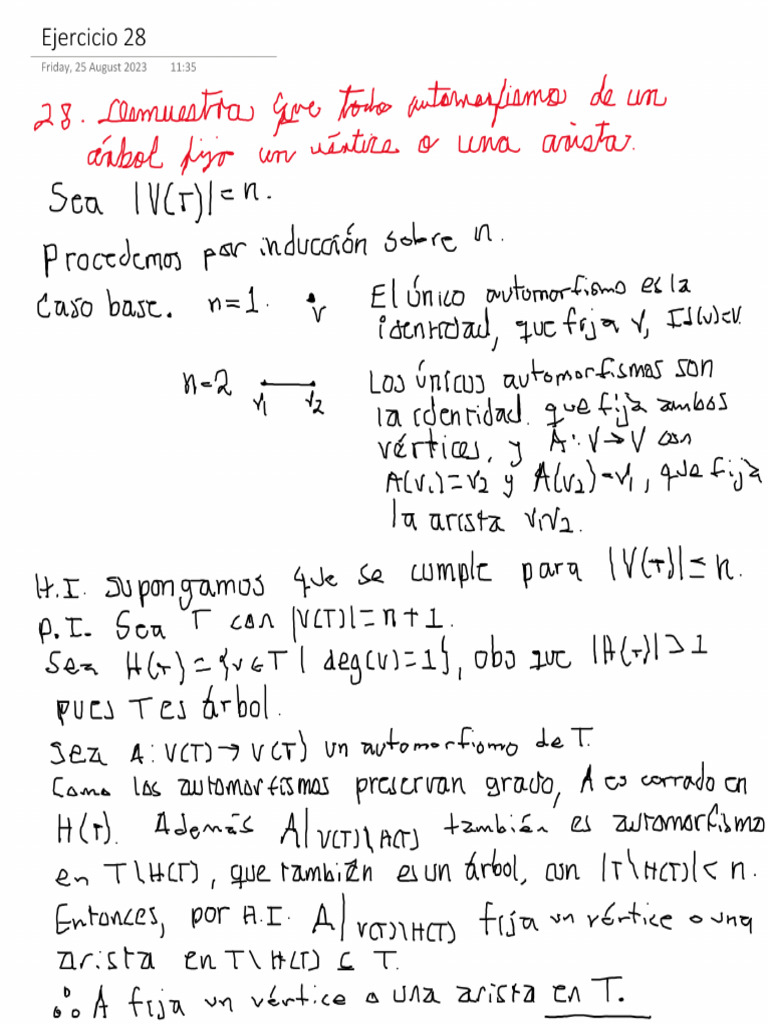 Ejercicio 28
Friday, 25 August 2023 11:35
28. Demuestra que todo automorfismo de un
árbol fijo un vértice o una arista.
Sea |V(T)|=n.
Procedemos por inducción sobre n.
Caso base. n=1. v El único automorfismo es la
identidad, que fija v, Id(v)=v.
n=2 v₁ v₂ Los únicos automorfismos son
la identidad. que fija ambos
vértices, y A:V→V con
A(v₁)=v₂ y A(v₂)=v₁, que fija
la arista v₁v₂.
H.I. supongamos que se cumple para |V(T)|≤n.
P.I. Sea T con |V(T)|=n+1.
Sea H(T)={v∈T| deg(v)=1}, obs que |H(T)|>1
pues T es árbol.
Sea A:V(T)→V(T) un automorfismo de T.
Como los automorfismos preservan grado, A es cerrado en
H(T). Además A|V(T)\H(T) también es automorfismo
en T\H(T), que también es un árbol, con |T\H(T)|<n.
Entonces, por H.I. A|V(T)\H(T) fija un vértice o una
arista en T\H(T) ⊆ T.
∴ A fija un vértice o una arista en T.